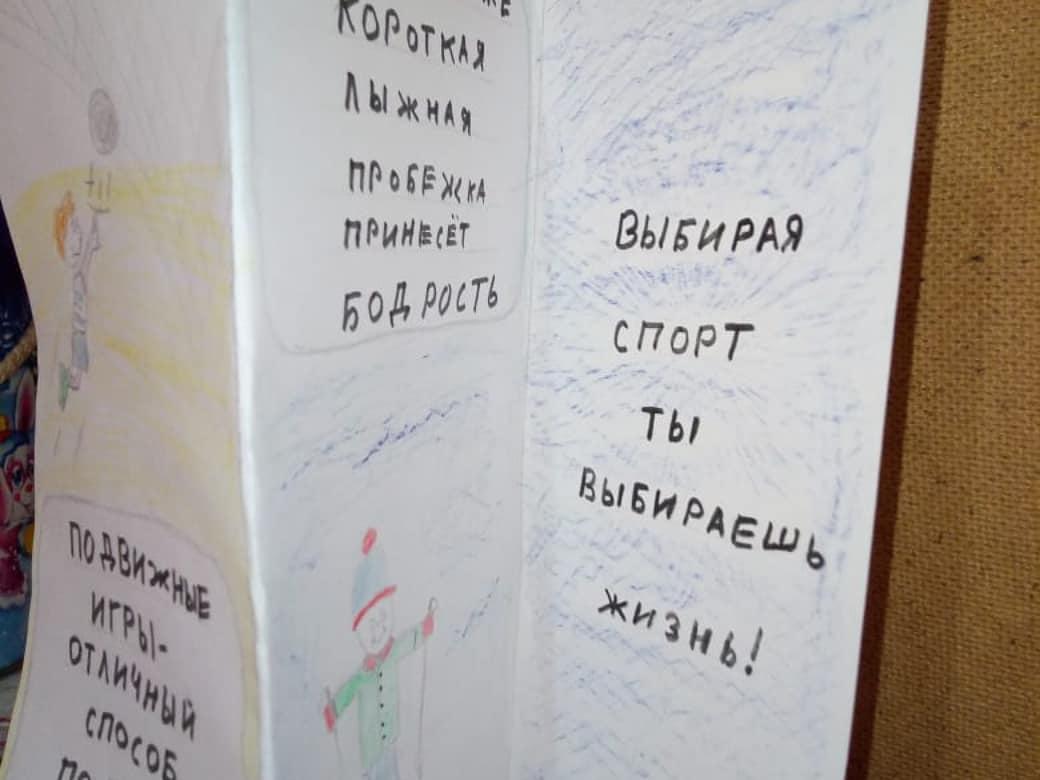 ПОДВИЖНЫЕ
ИГРЫ-
ОТЛИЧНЫЙ
СПОСОБ
КОРОТКАЯ
ЛЫЖНАЯ
ПРОБЕЖКА
ПРИНЕСЁТ
БОДРОСТЬ
ВЫБИРАЯ
СПОРТ
ТЫ
ВЫБИРАЕШЬ
ЖИЗНЬ!